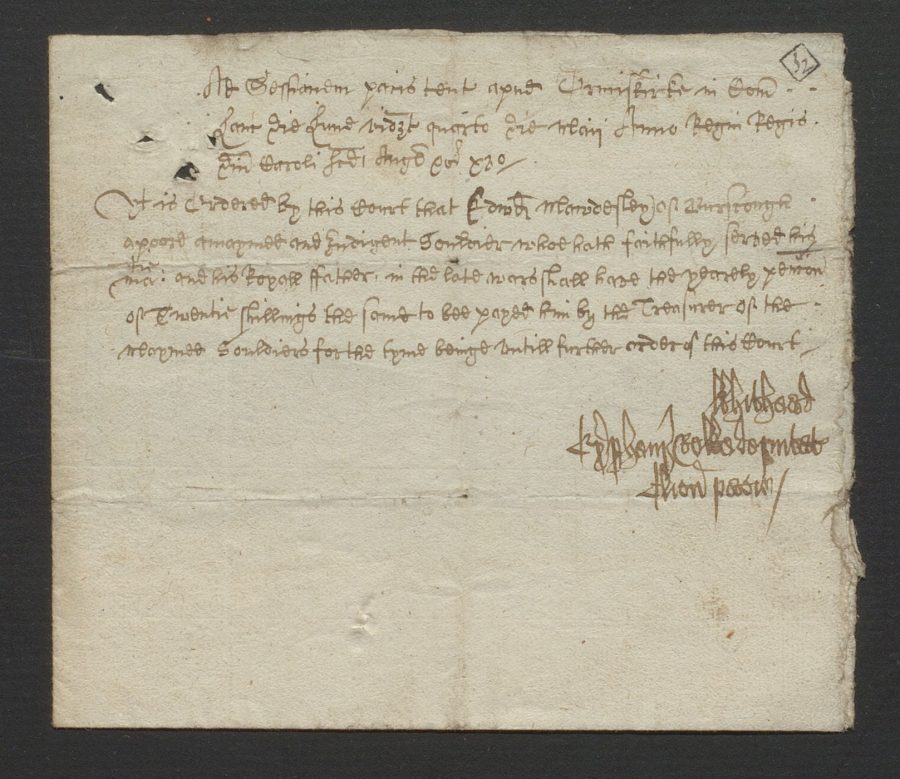 52
Ad Sessionem pacis tent apud Ormiskirke in Com
Lanc die Lune vidzt quarto die Maii Anno Regni Regis
Dni Caroli scdi Angl &c xvo
It is Ordered by this Court that Edwd Mawdesley of Burscough
a poore maymed and Indigent Souldier whoe hath faithfully served his
Matie and his Royall ffather in the late wars shall have the yearely pencon
of Twentie shillings the same to bee payed him by the Treasurer of the
Maymed Souldiers for the tyme beinge untill further order of this Court
deputat
Cleric pacis